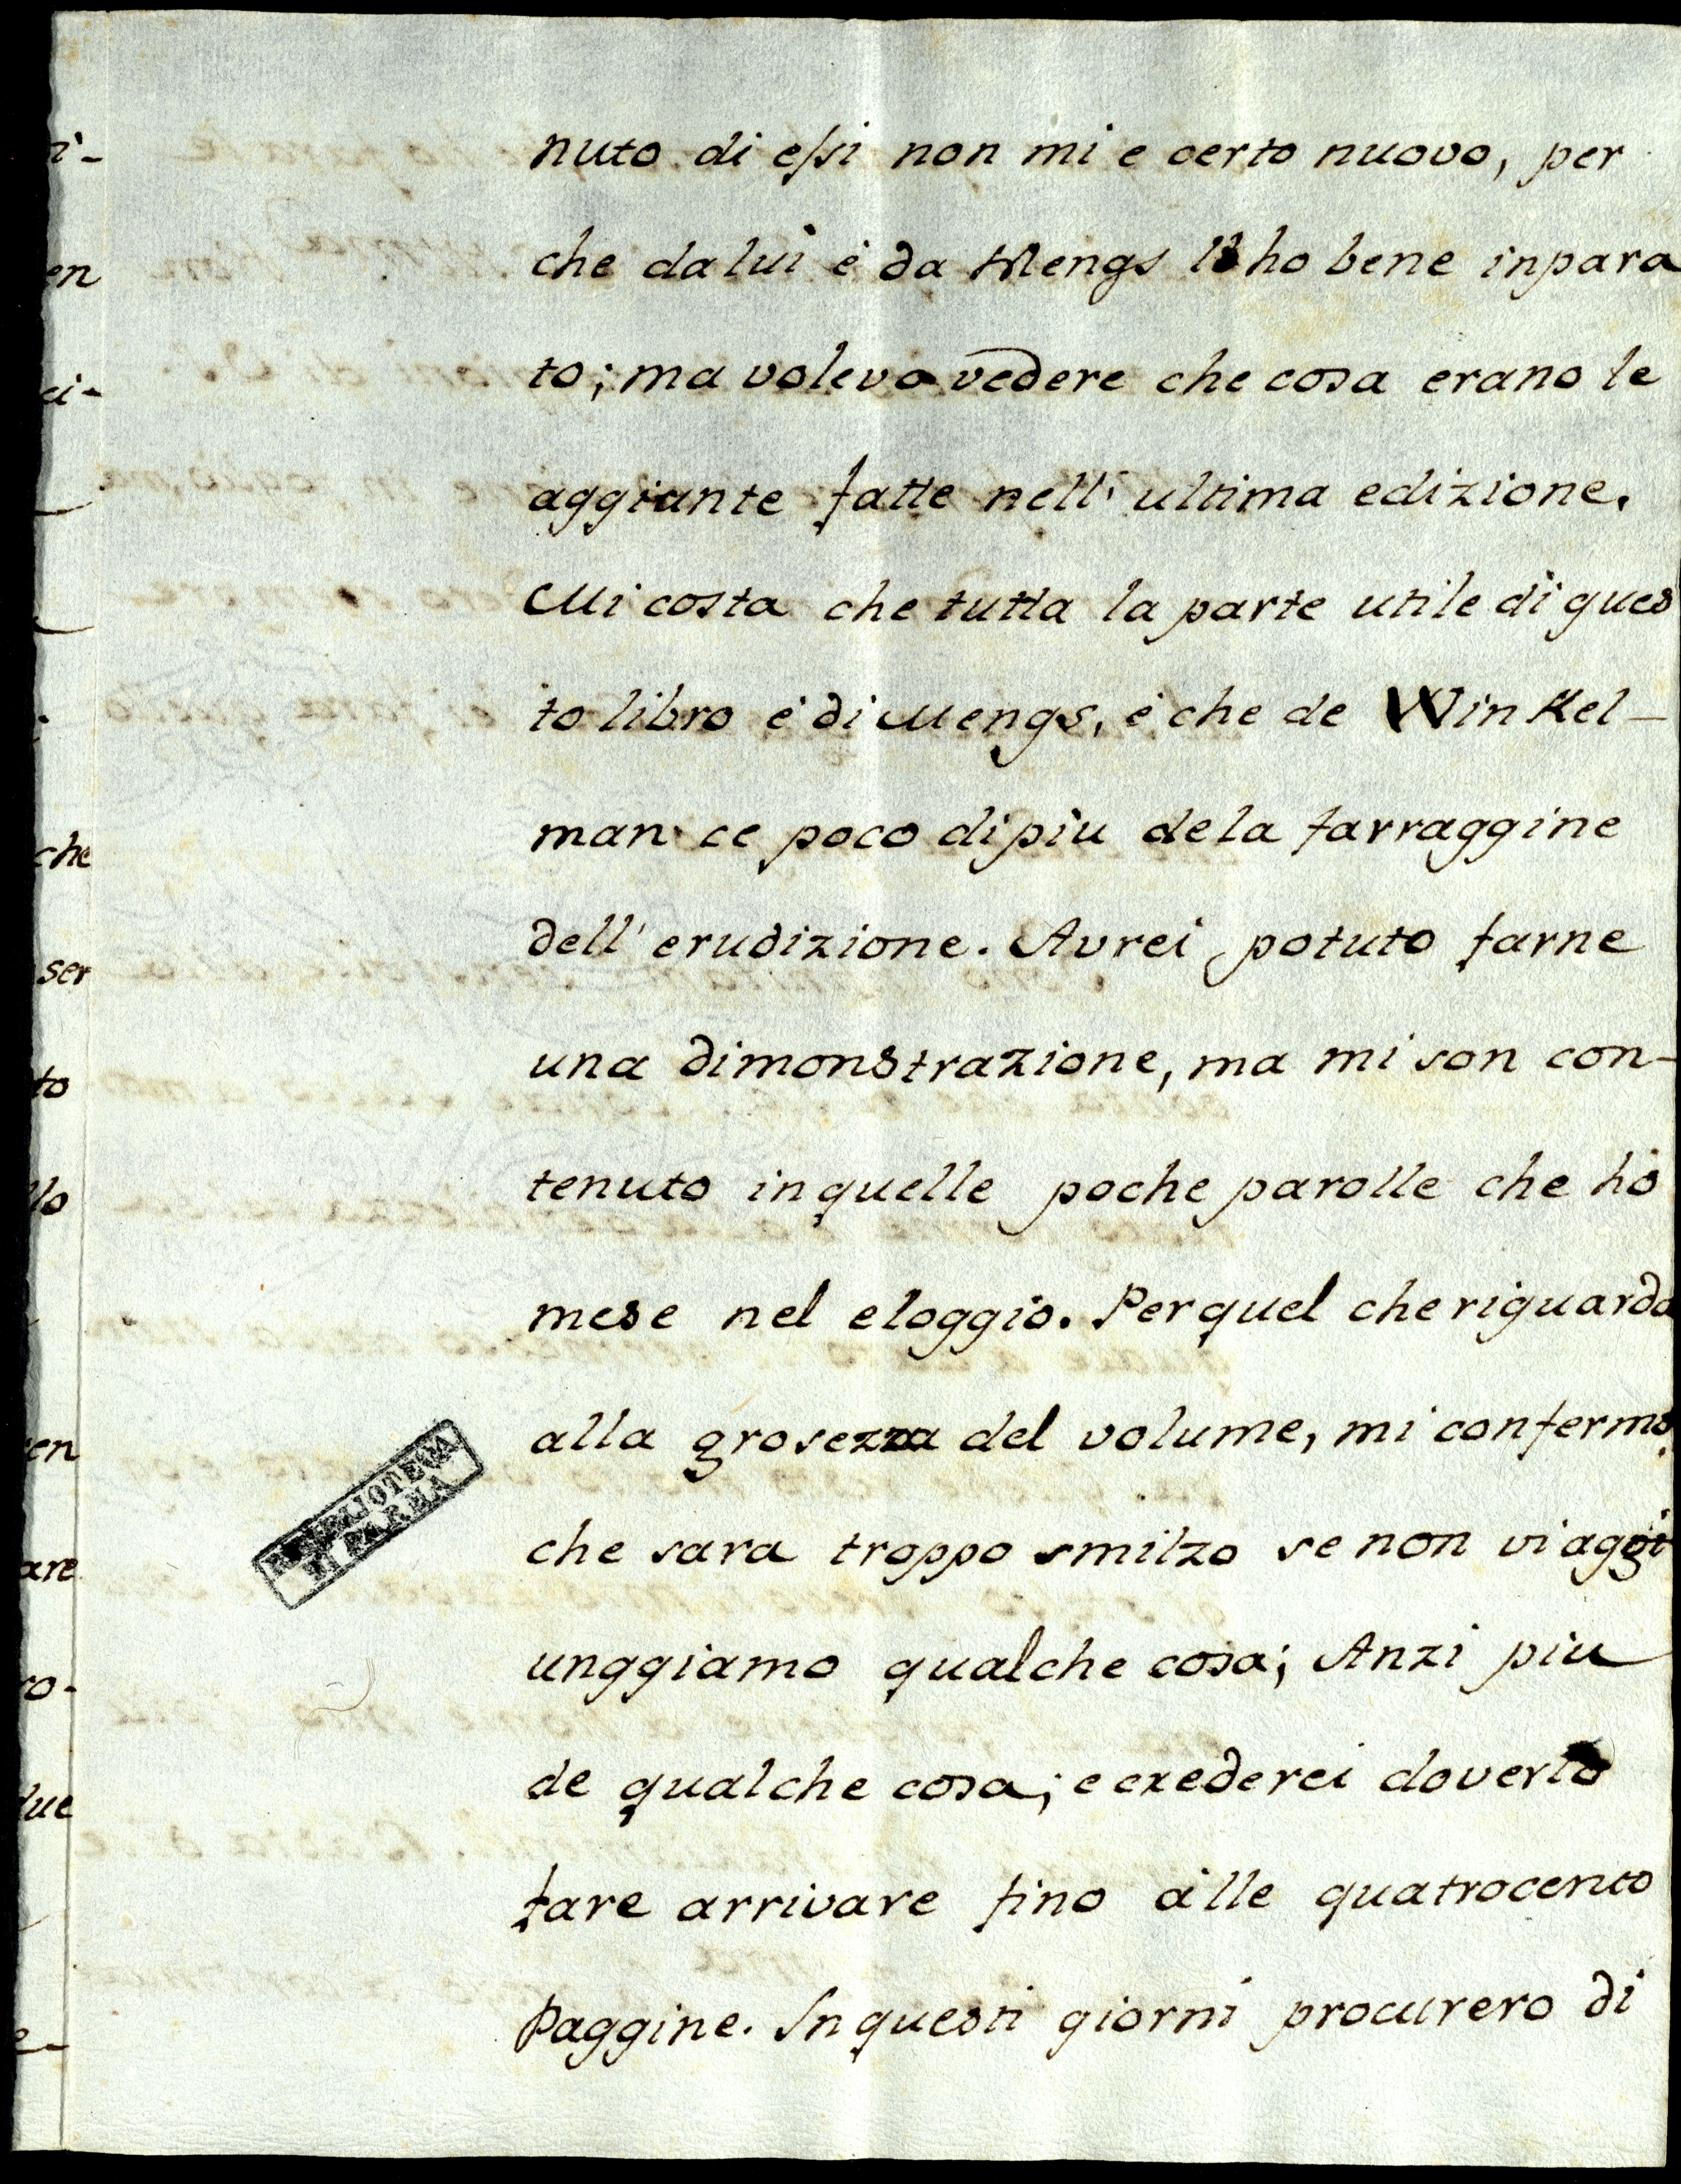 nuto di essi non mi e certo nuovo, per
che da lui é da Mengs l'ho bene inpara
to; ma volevo vedere che cosa erano le
aggiunte fatte nell' ultima edizione.
Mi costa che tutta la parte utile di ques
to libro é di Mengs, é che de Winkel-
man ce poco di piu de la farraggine
dell' erudizione. Avrei potuto farne
una dimonstrazione, ma mi son con-
tenuto in quelle poche parolle che hó
mese nel eloggio. Per quel che riguarda
alla grosezza del volume, mi confermo,
che sara troppo smilzo se non vi aggi
unggiamo qualche cosa; Anzi piu
de qualche cosa; e crederei doverlo
fare arrivare fino álle quatrocento
Paggine. In questi giorni procurero di
R. BIBLIOTECA
DI PARMA
en
ci-
che
ser
to
lo
en
are
ro-
due